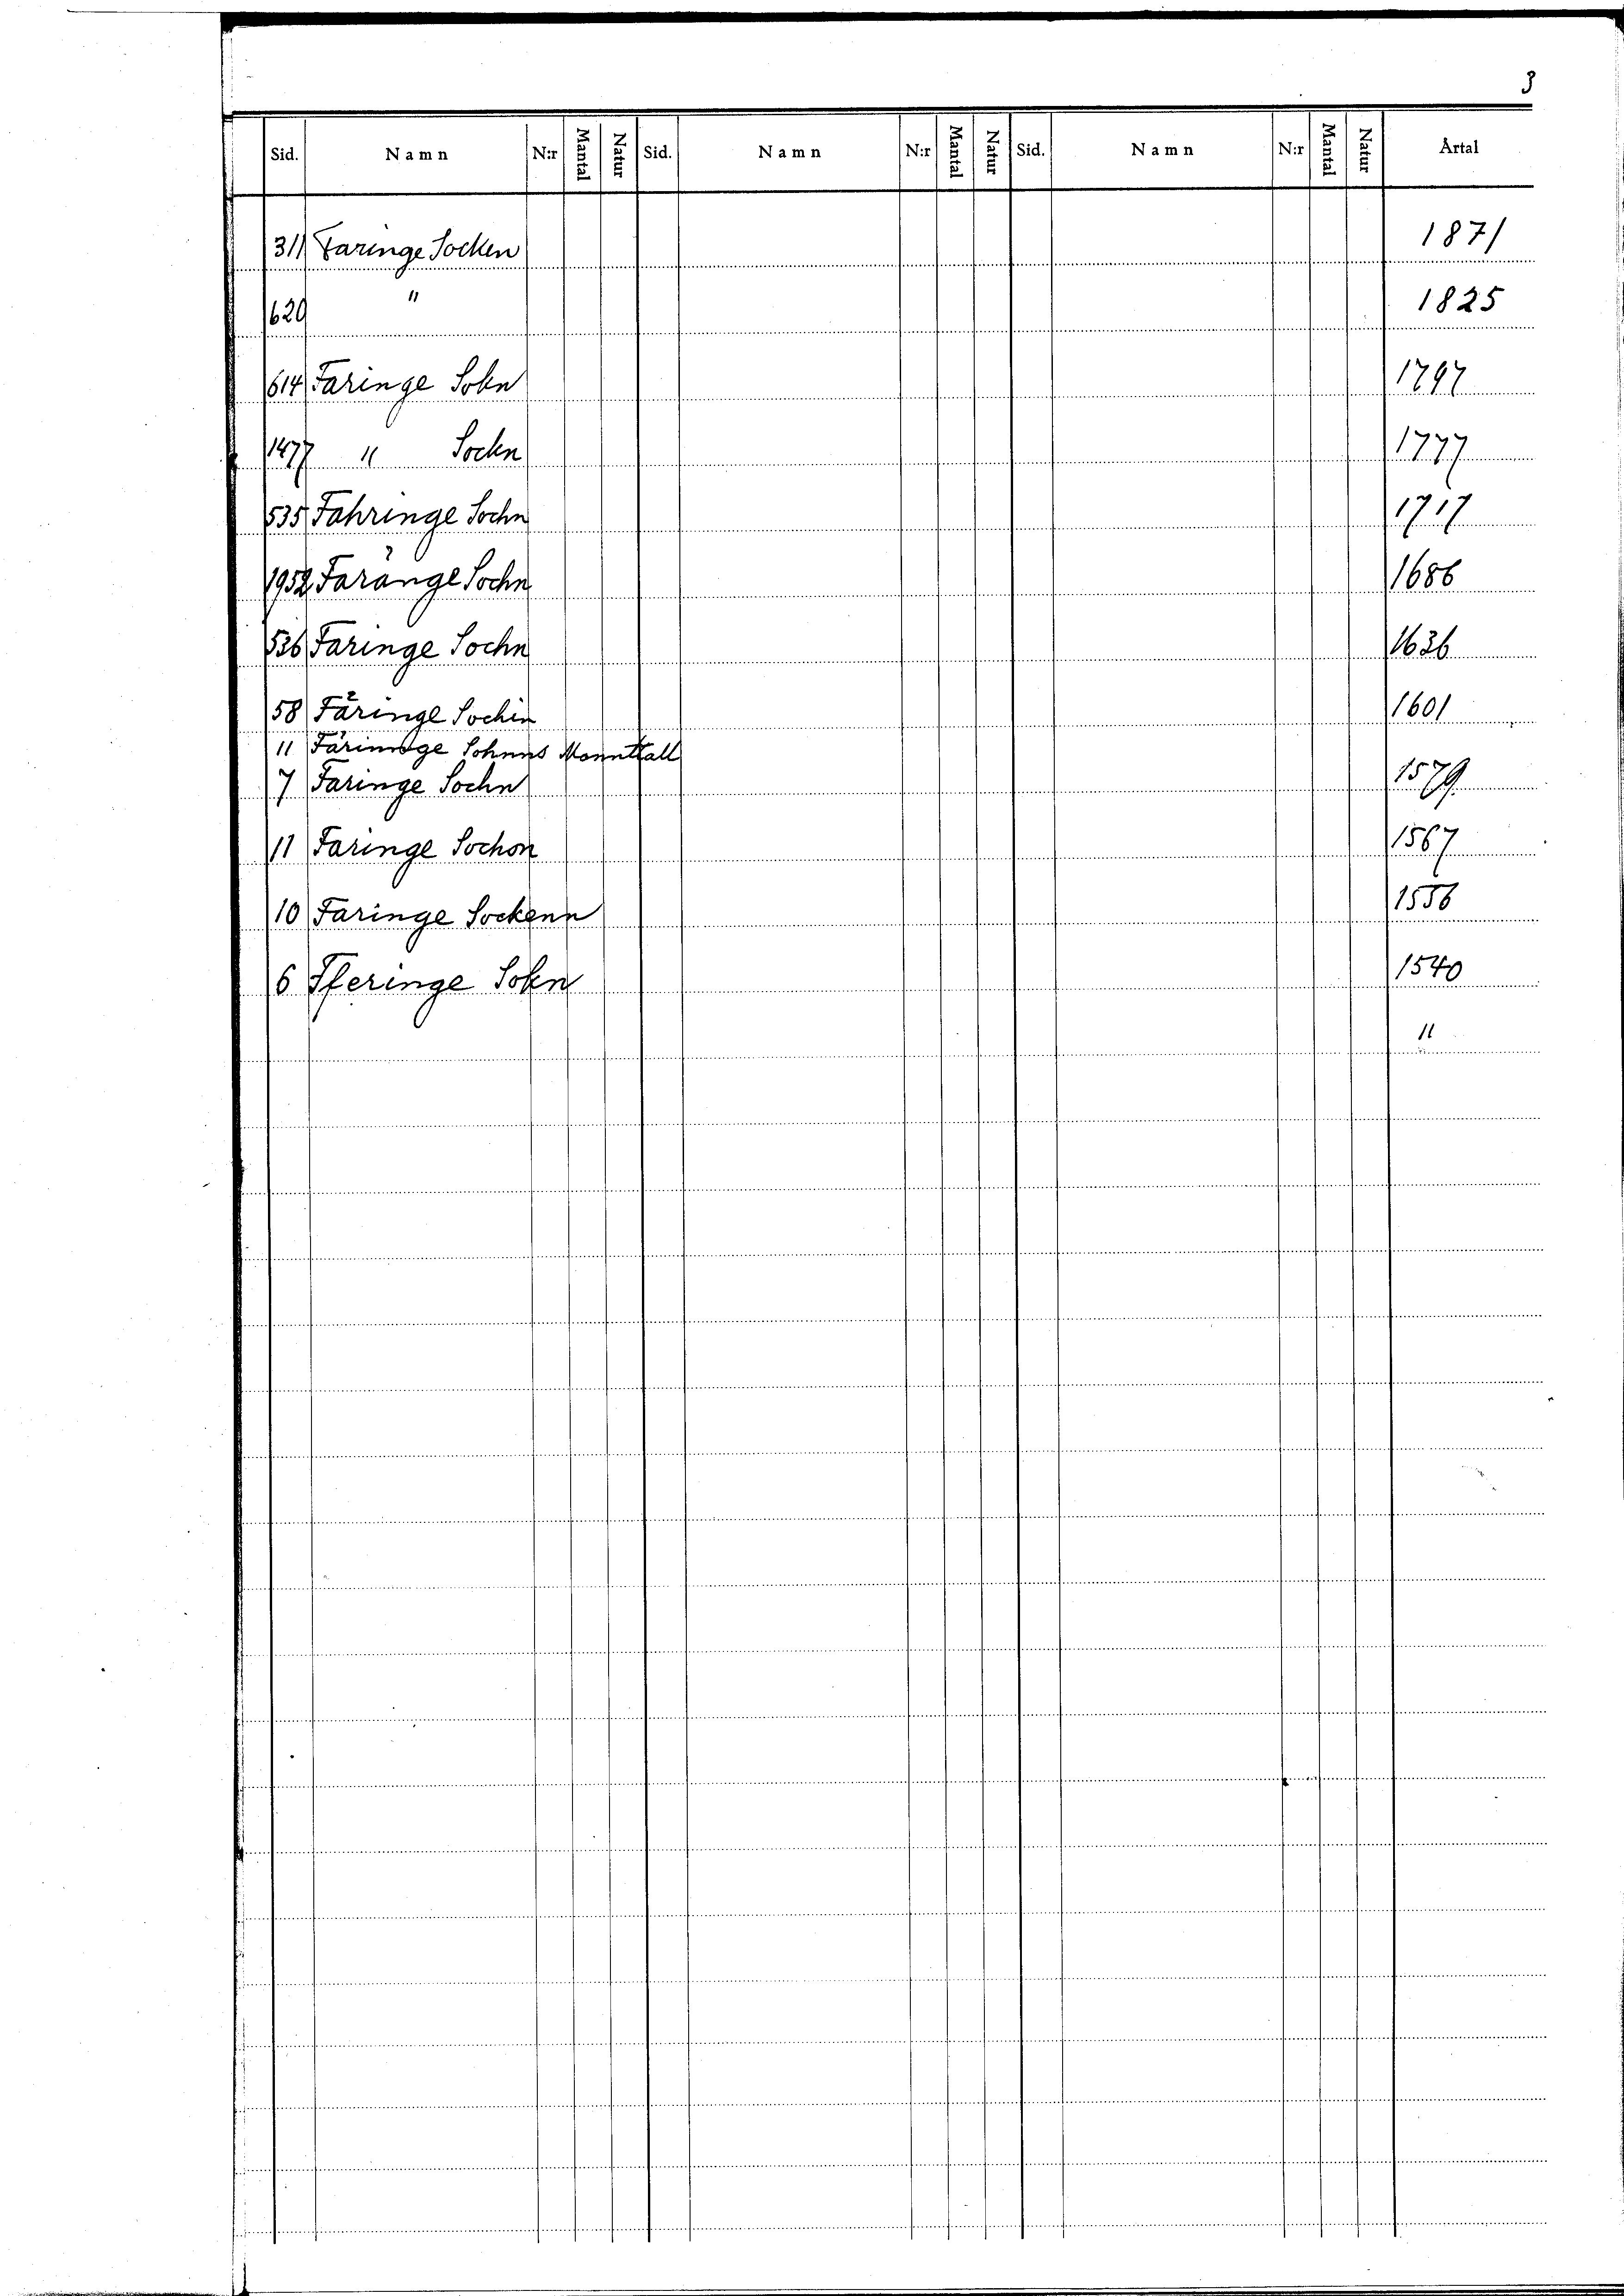 3
Sid. Namn N:r Mantal Natur Sid. Namn N:r Mantal Natur Sid. Namn N:r Mantal Natur Årtal
311 Faringe Socken 1871
620 " 1825
614 Faringe Sokn 1797
1477 " Sockn 1777
535 Fahringe Sochn 1717
1952 Faränge Sochn 1686
536 Faringe Sochn 1636
58 Färinge Sochin 1601
11 Färinnge Sohnns Monnttall
7 Faringe Sochn 1579.
11 Faringe Sochon 1567
10 Faringe Sockenn 1556
6 Fferinge Sokn 1540
"